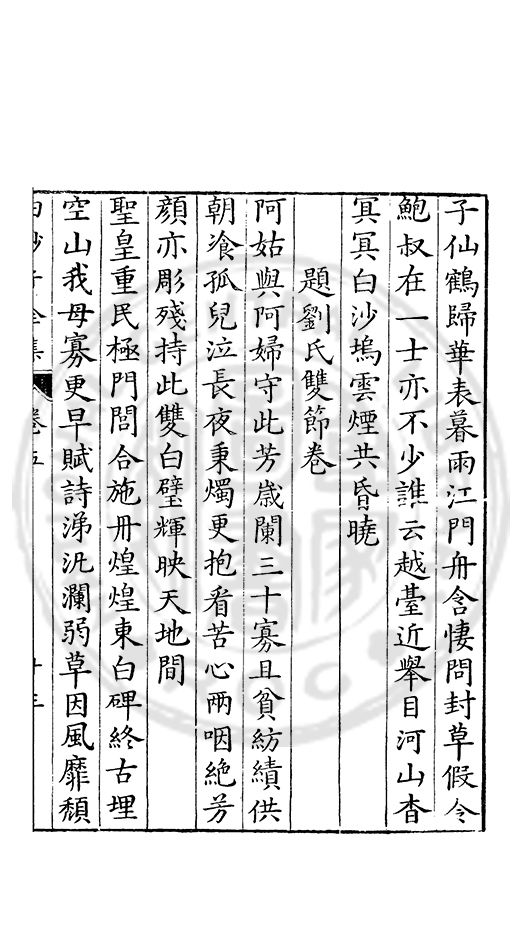 子仙鶴歸華表暮雨江門舟含悽問封草假令
鮑叔在一士亦不少誰云越臺近舉目河山杳
冥冥白沙塢雲煙共昏曉
題劉氏雙節卷
阿姑與阿婦守此芳歲闌三十寡且貧紡績供
朝湌孤兒泣長夜秉燭更抱看苦心兩咽絶芳
顏亦彫殘持此雙白璧輝映天地間
聖皇重民極門閭合施丹煌煌東白碑終古埋
空山我母寡更早賦詩涕汍瀾弱草因風靡頹
白沙子全集 卷五 十三